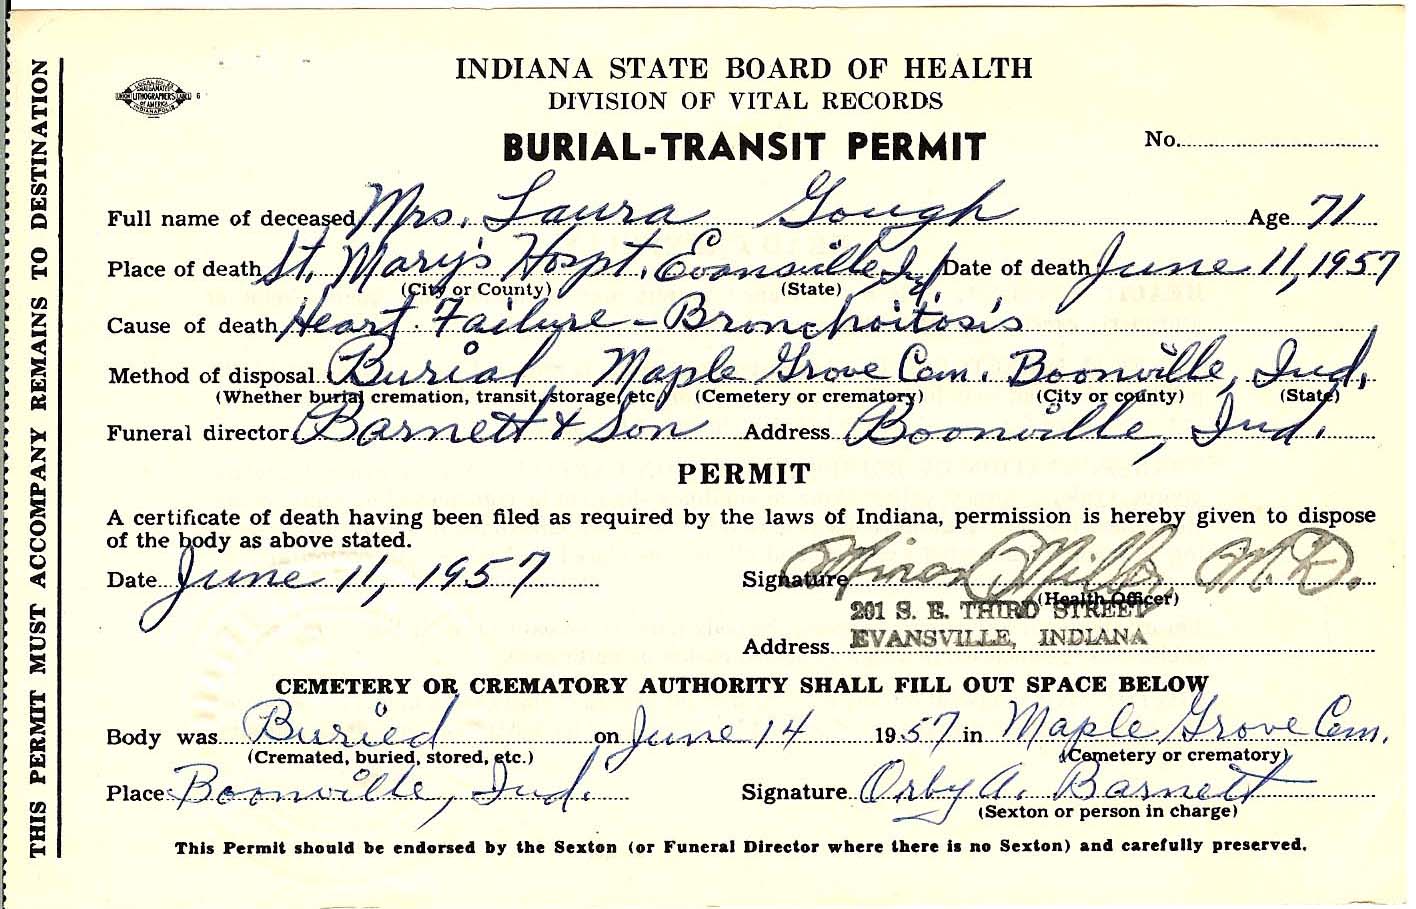 INDIANA STATE BOARD OF HEALTH
DIVISION OF VITAL RECORDS
BURIAL-TRANSIT PERMIT
No.
Full name of deceased Mrs. Laura Gough Age 71
Place of death St. Mary's Hospt. Evansville Ind. Date of death June 11, 1957
(City or County) (State)
Cause of death Heart Failure - Bronchoitosis
Method of disposal Burial Maple Grove Cem. Boonville, Ind.
(Whether burial cremation, transit, storage, etc.) (Cemetery or crematory) (City or county) (State)
Funeral director Barnett & Son Address Boonville, Ind.
PERMIT
A certificate of death having been filed as required by the laws of Indiana, permission is hereby given to dispose
of the body as above stated.
Date June 11, 1957 Signature Minor Miller M.D.
(Health Officer)
201 S. E. THIRD STREET
Address EVANSVILLE, INDIANA
CEMETERY OR CREMATORY AUTHORITY SHALL FILL OUT SPACE BELOW
Body was Buried on June 14 1957 in Maple Grove Cem.
(Cremated, buried, stored, etc.) (Cemetery or crematory)
Place Boonville, Ind. Signature Orby A. Barnett
(Sexton or person in charge)
This Permit should be endorsed by the Sexton (or Funeral Director where there is no Sexton) and carefully preserved.
THIS PERMIT MUST ACCOMPANY REMAINS TO DESTINATION